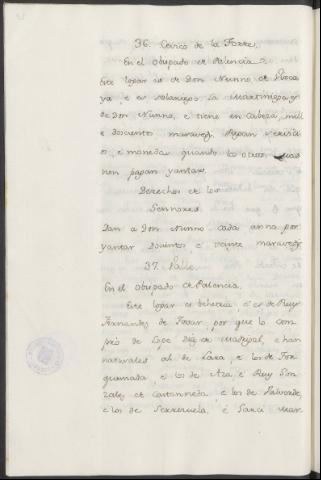 36. Cevico de la Torre.
En el obispado de Palencia
Este logar es de Don Nunno de
ya, e es solariego. La martiniega es
de Don Nunno, e tiene en cabeza, mill
e doscientos maraveds. Pagan servicios
o, e moneda quando los otros, mas
non pagan yantar.
Derechos de los
Sennores.
Dan a Don Nunno cada anno por
yantar docientos e veinte maraveds.
37.
En el obispado de Palencia.
Este logar es behetria e es de Ruy
Fernandes de Tovar por que lo com
pró de Lope Diaz de Madrigal, e han
naturales al de Lara, e los de Tor
quemada, e los de Aza e Ruy Gon
zales de Castanneda e los de Valverde,
e los de Serreruela, e Garci